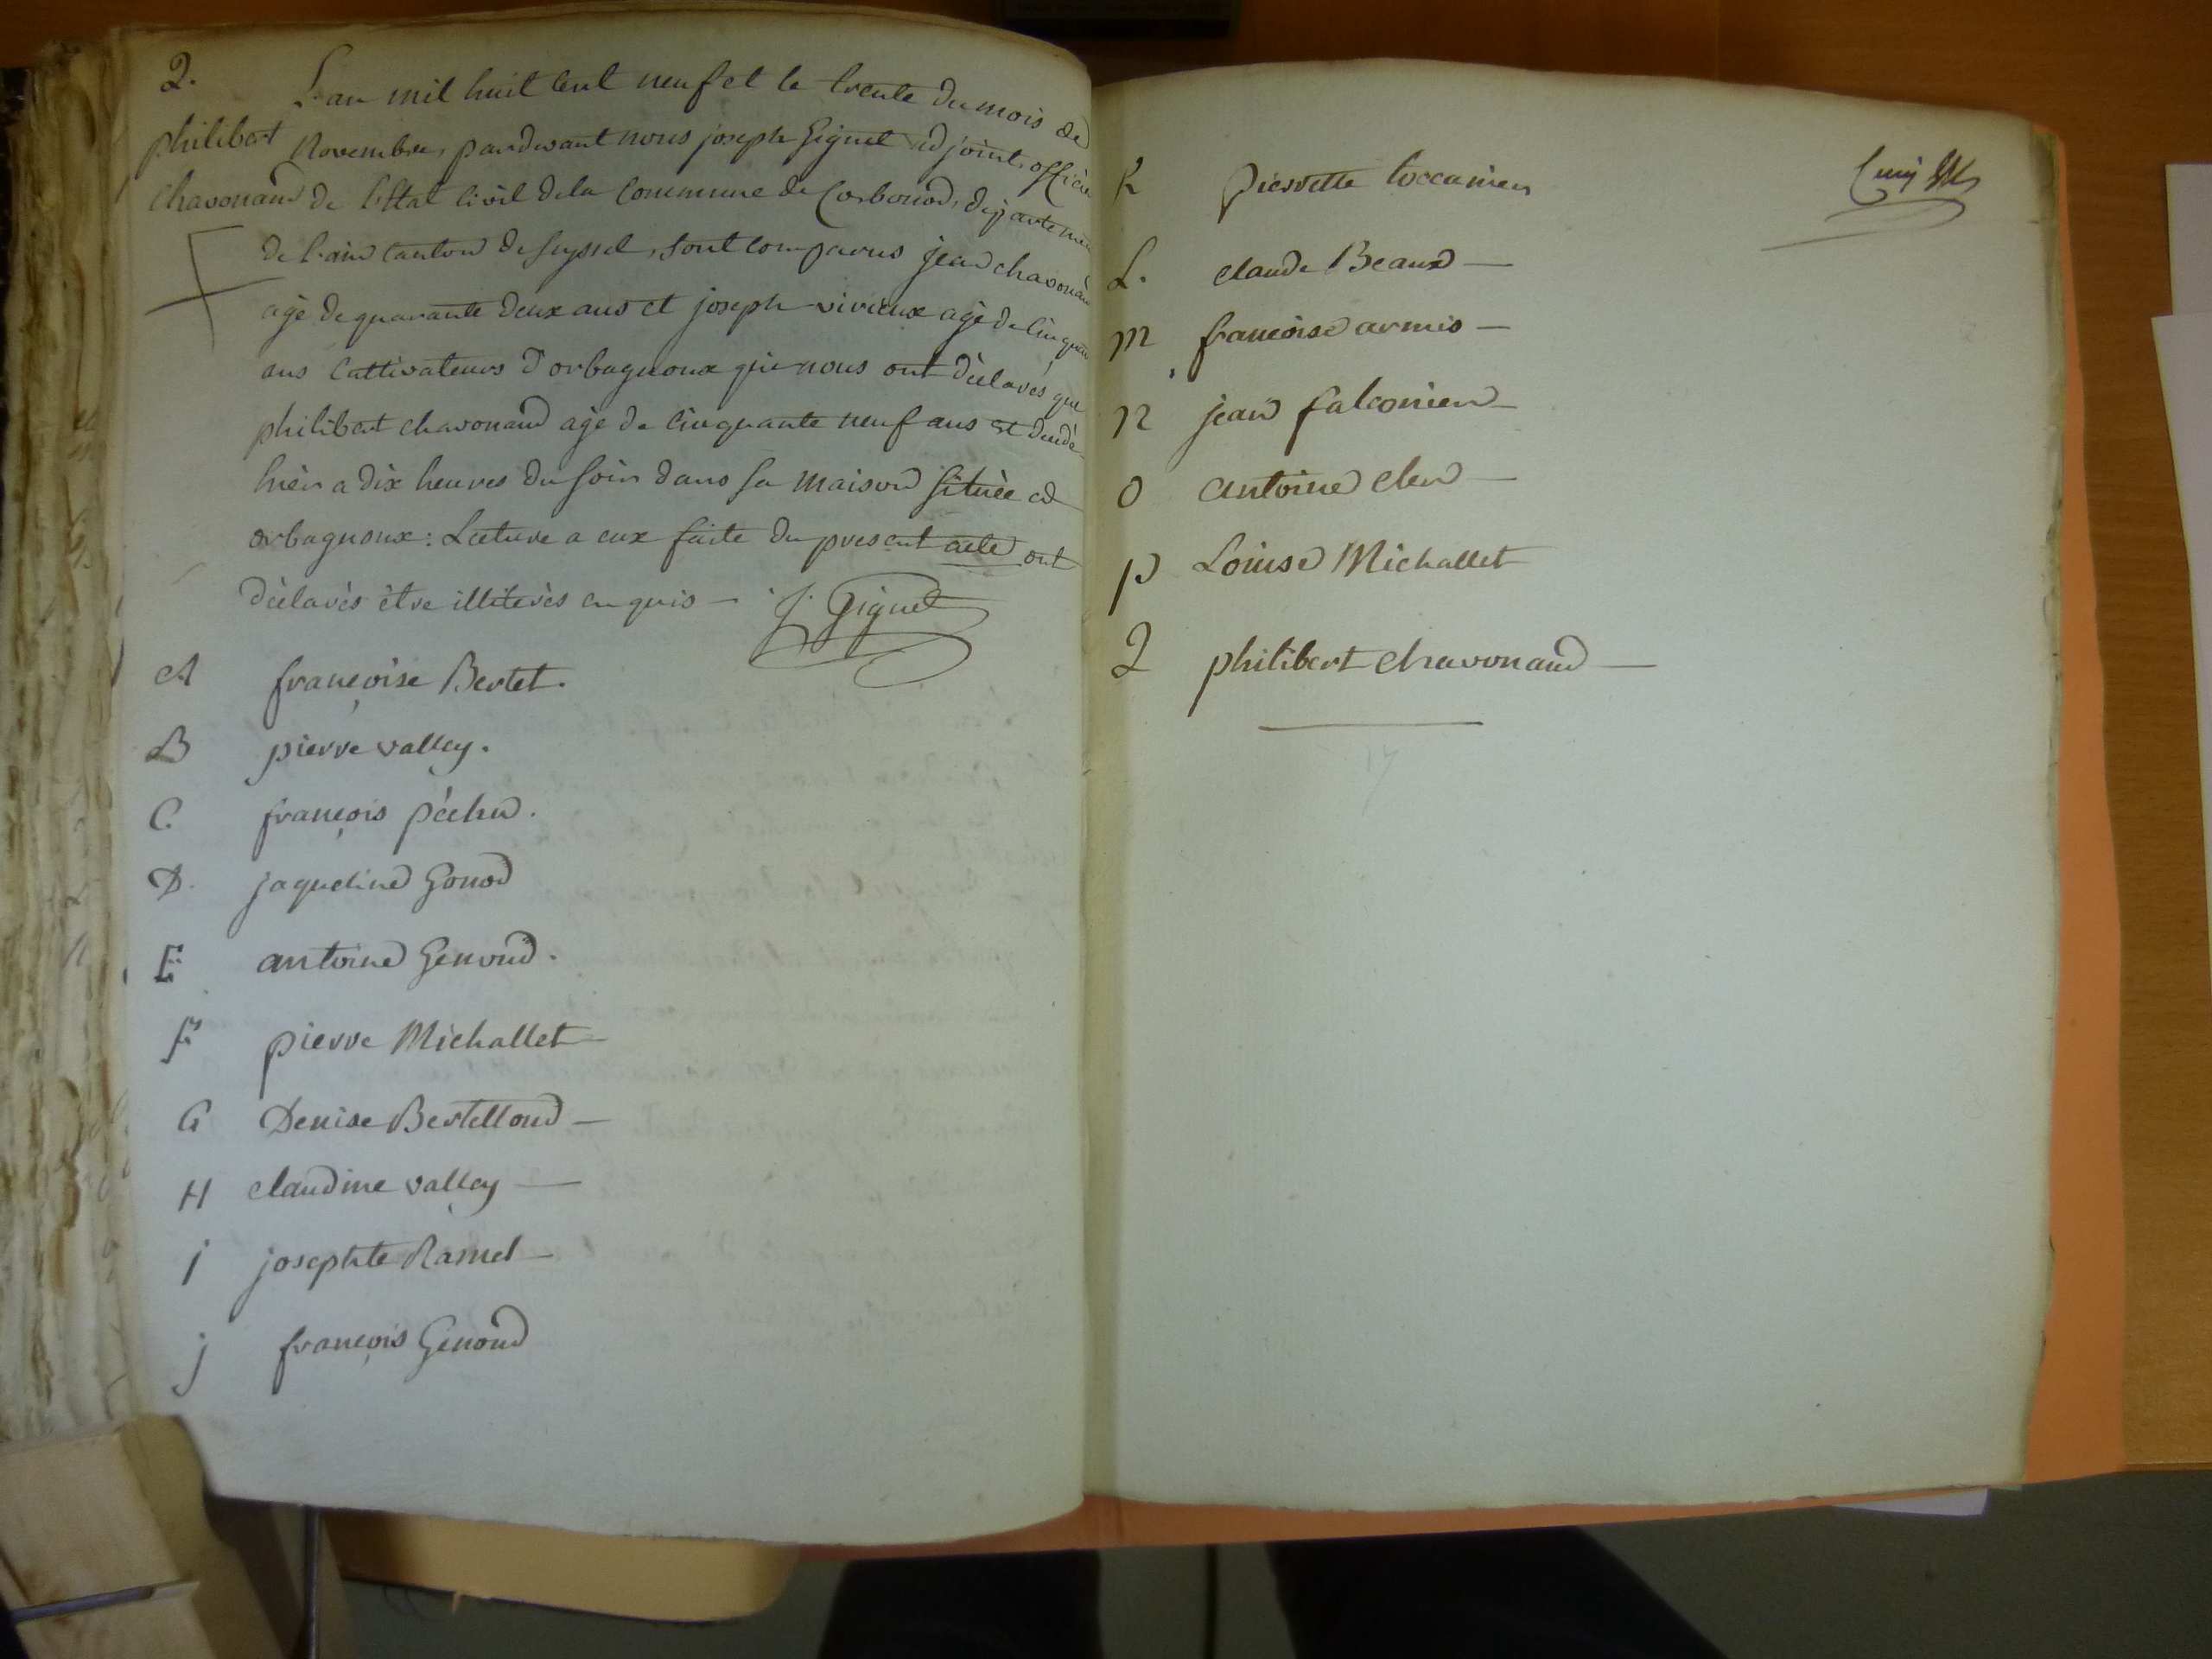 2.
L'an mil huit cent neuf et le trente du mois de
philibert
Novembre, pardevant nous joseph Gignet adjoint, officier
chavonand
de l'Etat civil de la Commune de Corbonod, departemen
de l'ain canton de seyssel, sont comparus jean chavonan
agé de quarante deux ans et joseph vivieux agé de cinquan
ans Cultivateurs d'orbagnoux qui nous ont dèclarés que
philibert chavonand agé de cinquante neuf ans est decedè
hièr a dix heures du soir dans sa maison situèe a
orbagnoux: Lecture a eux faite du present acte ont
dèclarés être illiterès enquis — J. Gignet
A françoise Bertet.
B pierre vallay.
C. françois pèchu.
D. jaqueline Gonod
E antoine Genoud.
F pierre Michallet
G Denise Bertelloud —
H claudine vallay —
i josephte Ramel —
j françois Genoud
K pierrette Coccanien
L. claude Beaud —
M françoise armis —
N jean falconien —
O antoine cler —
P Louise Michallet
Q philibert chavonand —